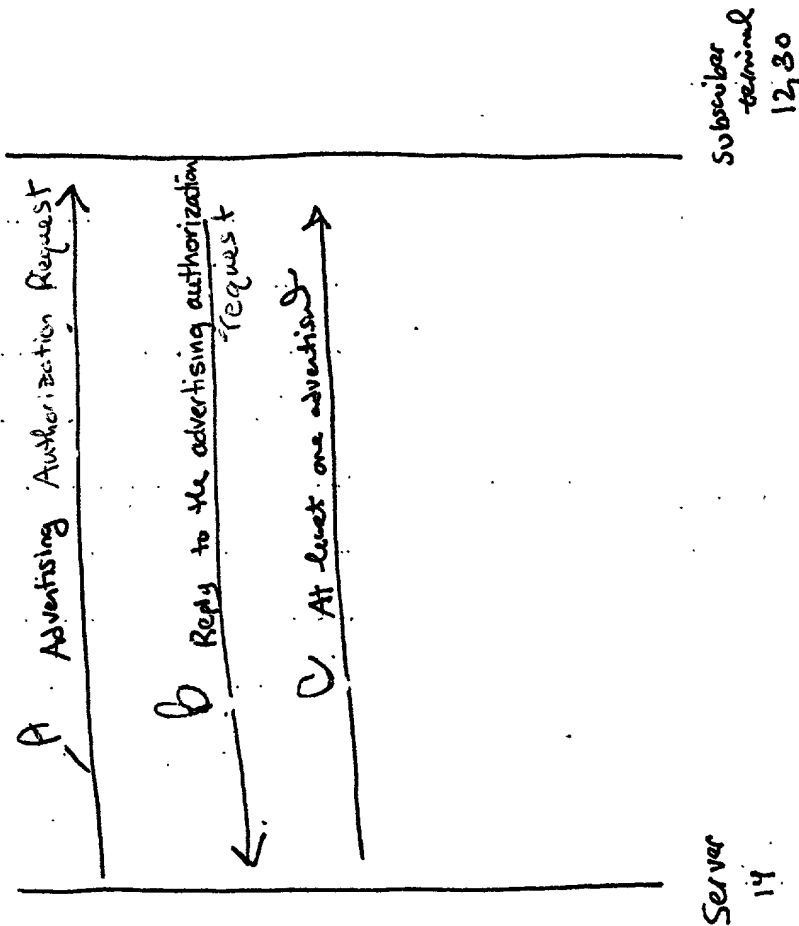 A Advertising Authorization Request
B Reply to the advertising authorization
request
C At least one advertising
Server
14
Subscriber
terminal
12,30